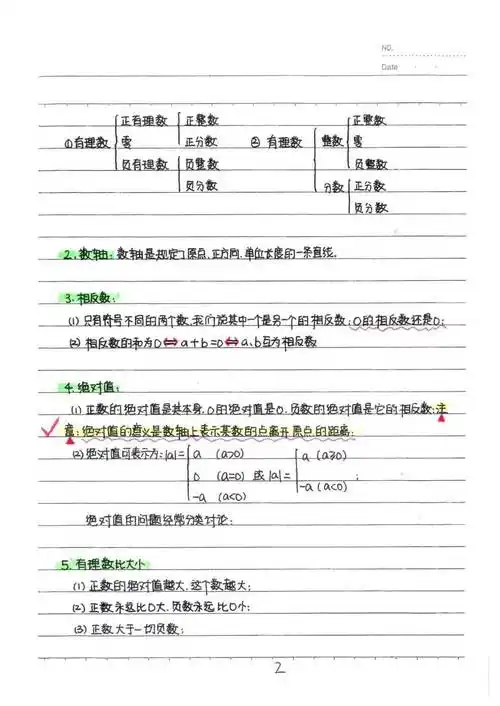 NO.
Date
正有理数 正整数 正整数
①有理数 零 正分数 ② 有理数 整数 零
负有理数 负整数 负整数
负分数 分数 正分数
负分数
2.数轴:数轴是规定了原点.正方向.单位长度的一条直线。
3.相反数:
(1)只有符号不同的两个数,我们说其中一个是另一个的相反数;0的相反数还是0;
(2)相反数的和为0⇔a+b=0⇔a.b互为相反数
4.绝对值:
(1)正数的绝对值是其本身.0的绝对值是0.负数的绝对值是它的相反数;注
意:绝对值的意义是数轴上表示某数的点离开原点的距离;
(2)绝对值可表示为:|a|= a (a>0) a (a≥0)
0 (a=0) 或|a|=
-a (a<0) -a (a<0)
绝对值的问题经常分类讨论;
5.有理数比大小
(1)正数的绝对值越大.这个数越大;
(2)正数永远比0大.负数永远比0小;
(3)正数大于一切负数;
2